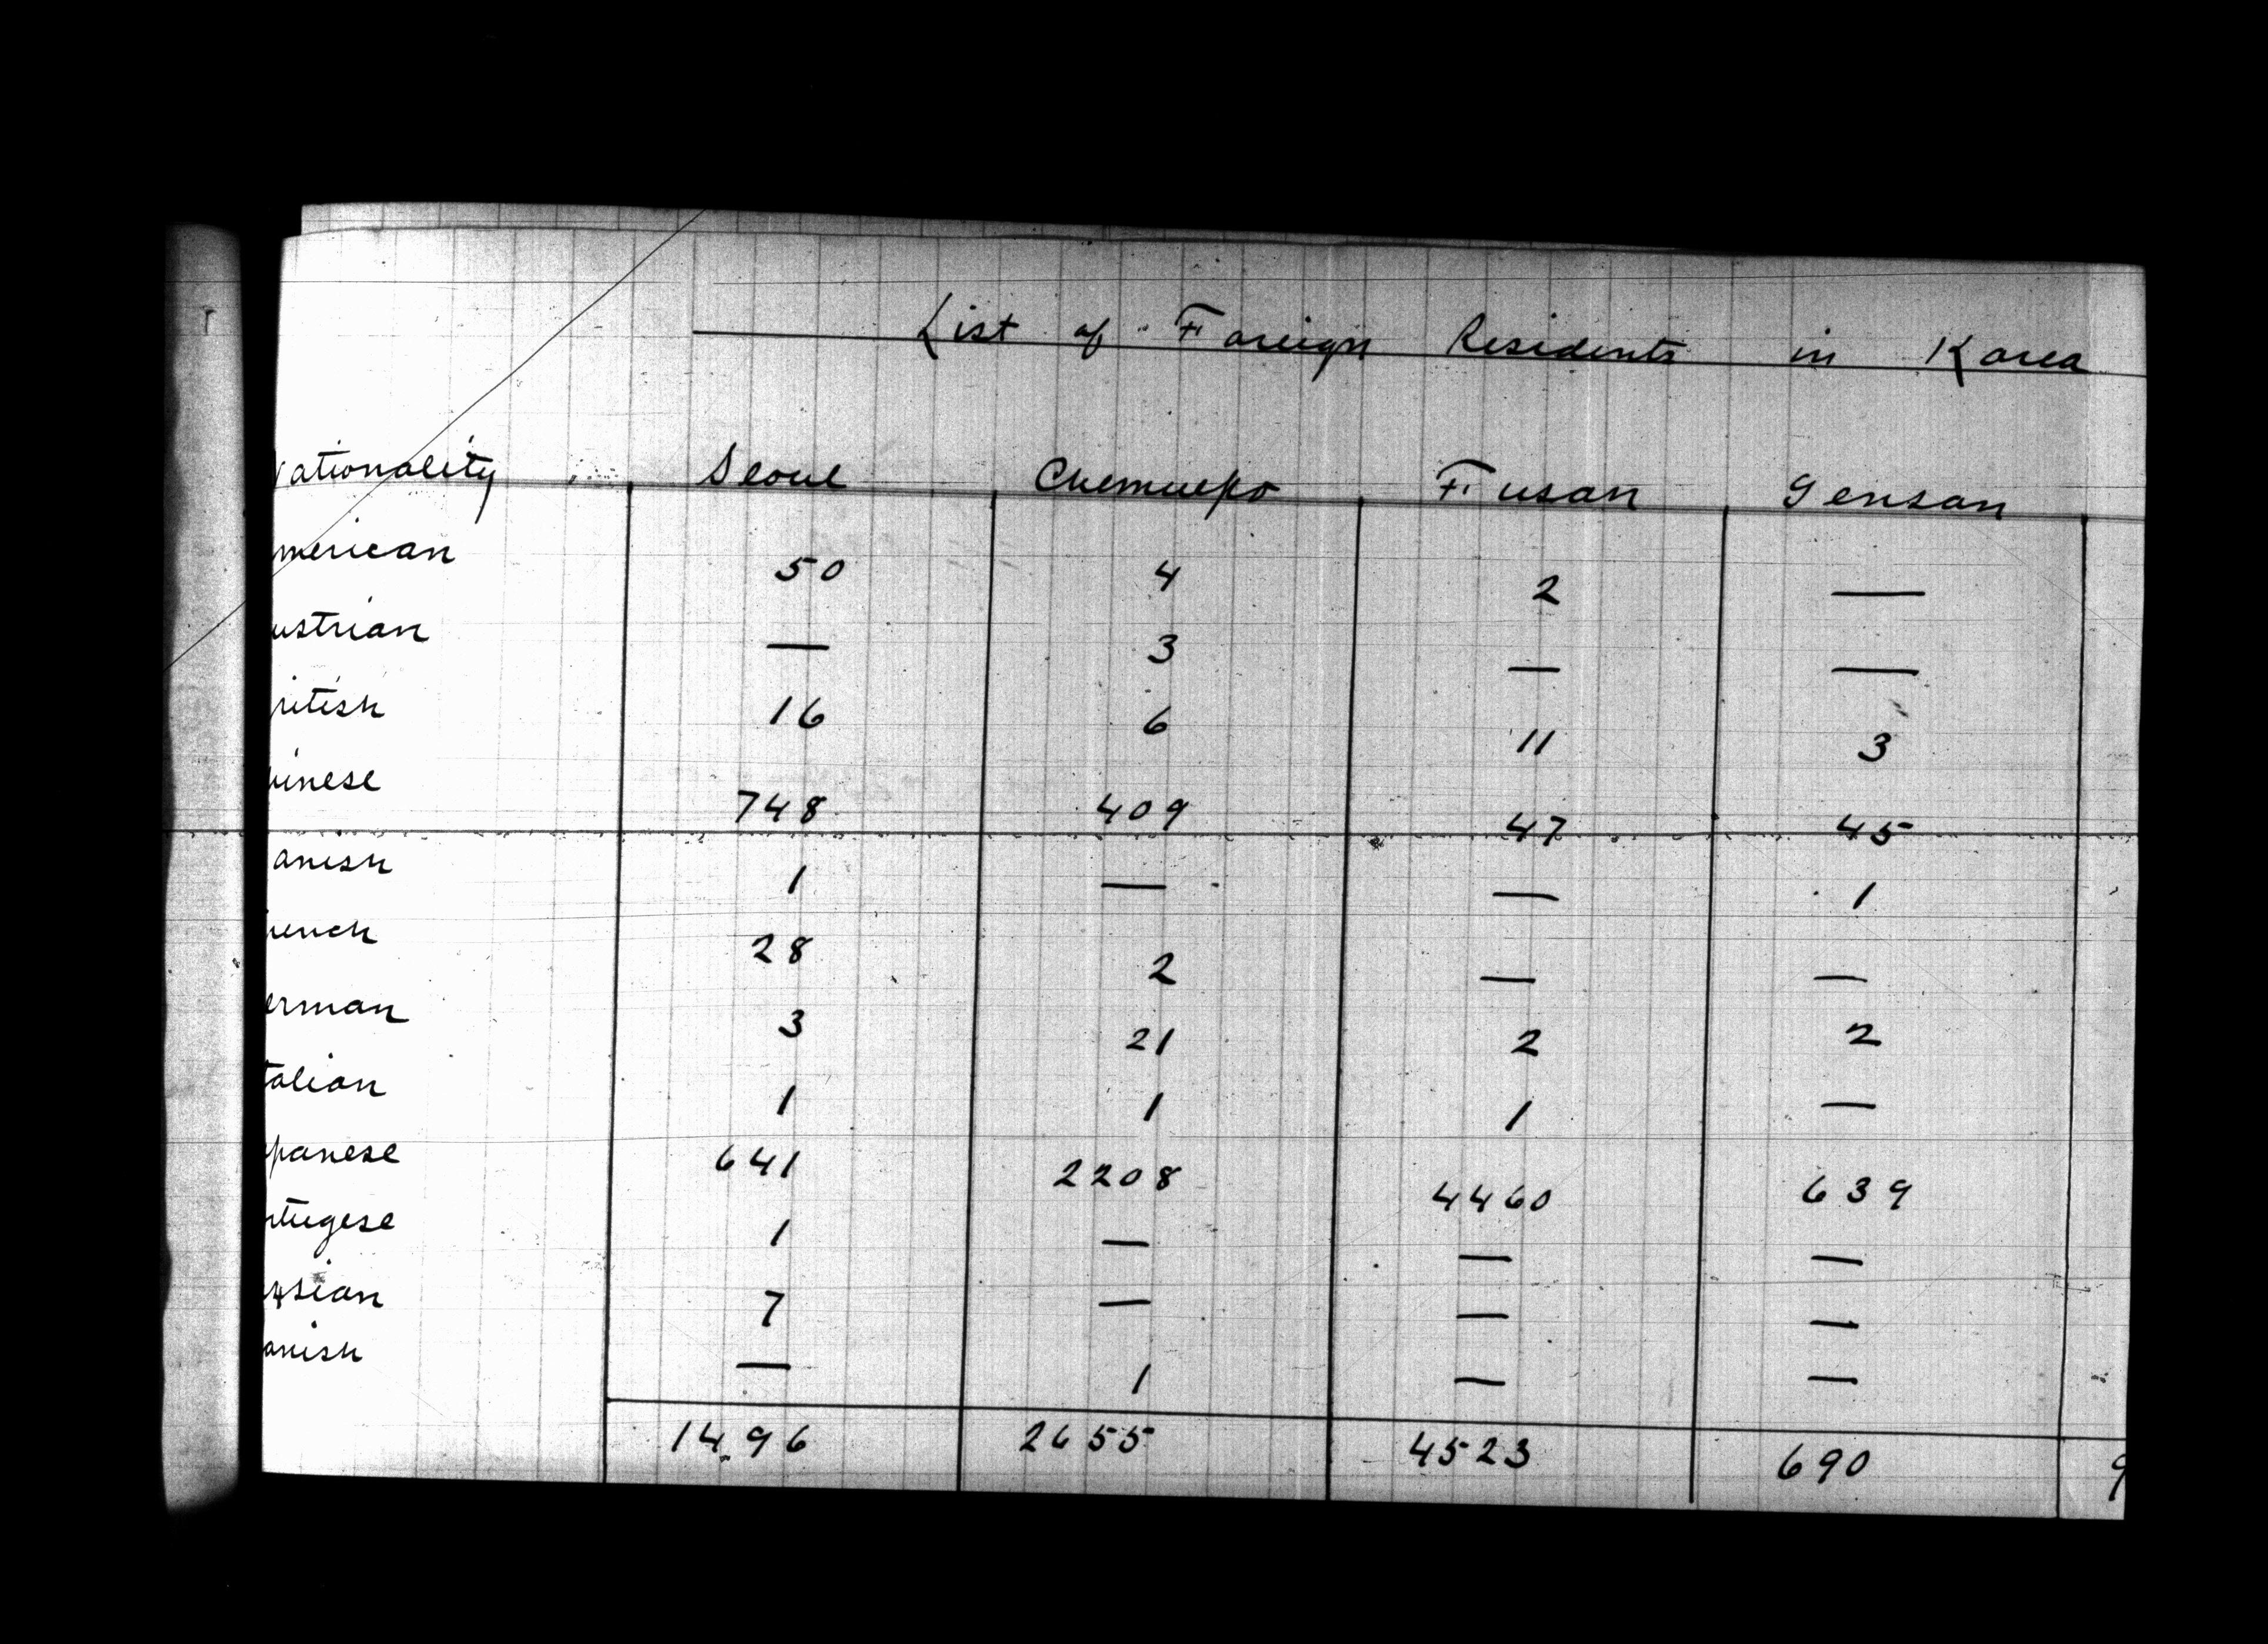 List of Foreign Residents in Korea
Nationality Seoul Chemuepo Fusan Gensan
merican 50 4 2 —
ustrian — 3 — —
ritish 16 6 11 3
hinese 748 409 47 45
anish 1 — — 1
rench 28 2 — —
erman 3 21 2 2
talian 1 1 1 —
panese 641 2208 4460 639
rtugese 1 — — —
ssian 7 — — —
anish — 1 — —
1496 2655 4523 690 9